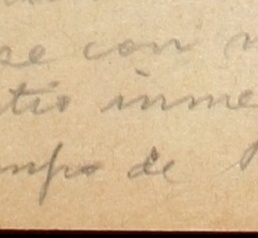 se con
tio inme
mpo de